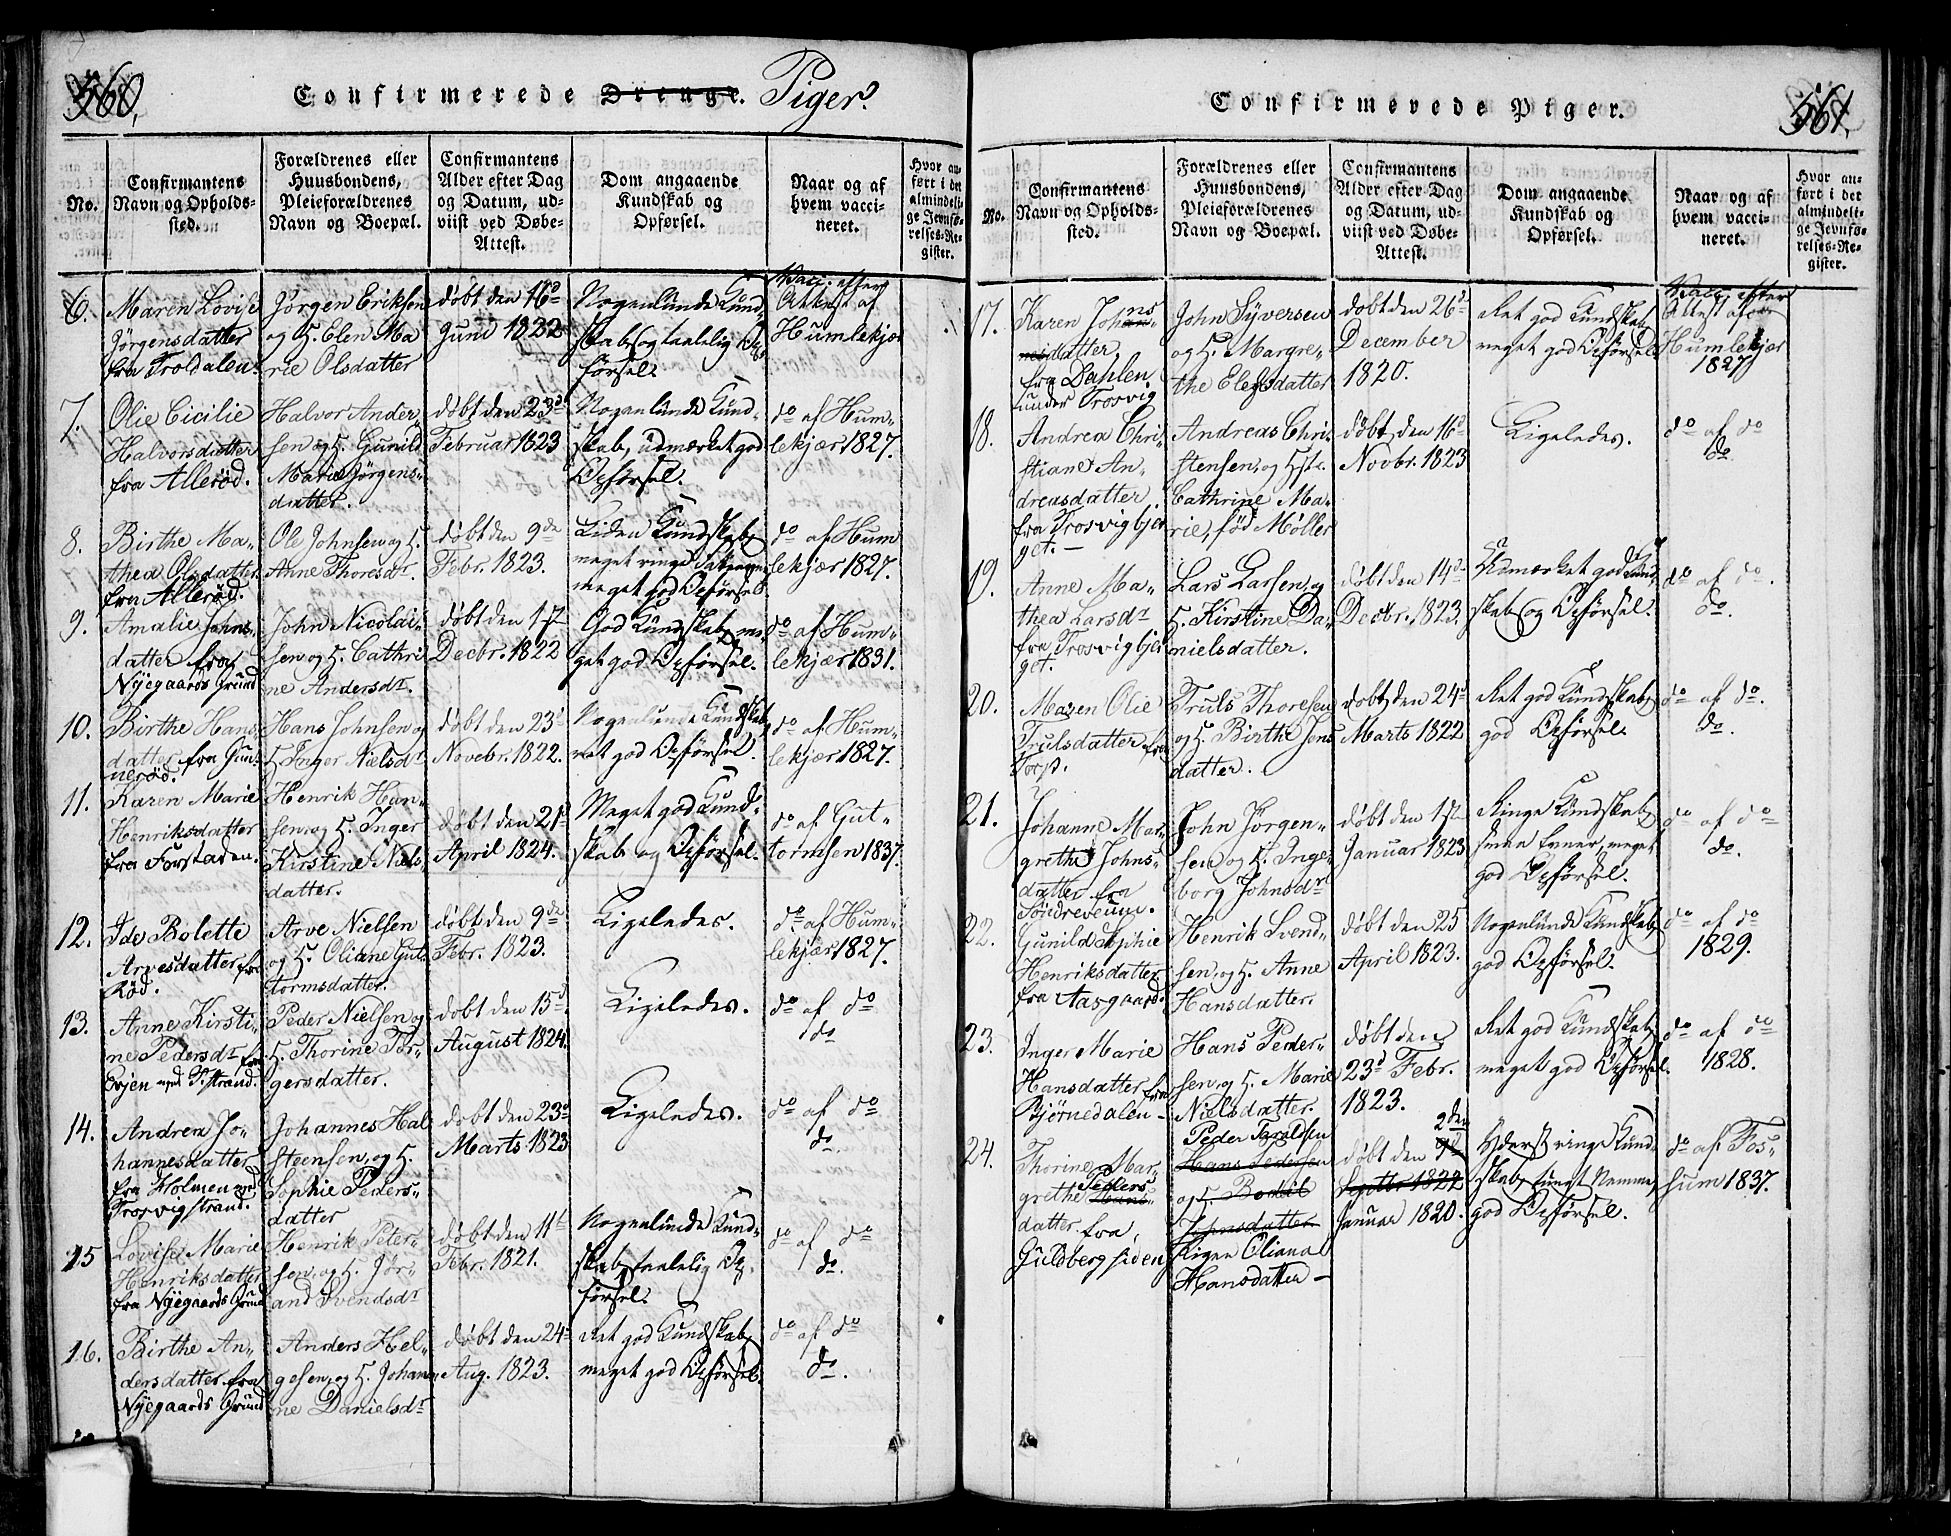 560.
Confirmerede Drenge. Piger.
No.
Confirmantens
Navn og Opholds-
sted.
Forældrenes eller
Huusbondens,
Pleieforældrenes
Navn og Boepæl.
Confirmantens
Alder efter Dag
og Datum, ud-
viist ved Døbe-
Attest.
Dom angaaende
Kundskab og
Opførsel.
Naar og af
hvem vacci-
neret.
Hvor an-
ført i det
almindeli-
ge Jevnfø-
relses-Re-
gister.
6.
Maren Lovise
Jørgensdatter
fra Trodalen.
Jørgen Eriksen
og H. Elen Ma
rie Olsdatter
døbt den 16d
Juni 1822
Nogenlunde Kund-
skab og taalelig Op-
førsel.
Vacc. efter
Attest af
Humlekjær
7.
Olie Cicilie
Halvorsdatter
fra Allerød.
Halvor Ander
sen og H. Gunild
Marie Jørgens-
datter.
døbt den 23d
Februar 1823
Nogenlunde Kund-
skab, udmærket god
Opførsel.
do af Hum-
lekjær 1827.
8.
Birthe Ma-
thea Olsdatter
fra Allerød.
Ole Johnsen og H.
Anne Thoresdr.
døbt den 9de
Febr. 1823.
Liden Kundskab,
meget ringe
meget god Opførsel
do af Hum
lekjær 1827.
9.
Amalie Johns-
datter fra
Nyegaards Grund
John Nicolai-
sen og H. Cathri
ne Andersdr.
døbt den 17
Decbr. 1822
God Kundskab, me-
get god Opførsel.
do af Hum-
lekjær 1831.
10.
Birthe Hans
datter fra Gun-
nerød.
Hans Johnsen og
H. Inger Nielsdr
døbt den 23d
Novebr. 1822.
Nogenlunde Kundskab,
meget god Opførsel.
do af Hum-
lekjær 1827.
11.
Karen Marie
Henriksdatter
fra Forstaden.
Henrik Han-
sen og H. Inger
Kirstine Niels
datter.
døbt den 21d
April 1824.
Meget god Kund-
skab og Opførsel.
do af Gut-
tormsen 1837.
12.
Ide Bolette
Arvesdatter fra
Rød.
Arve Nielsen
og H. Oliane Gut
tormsdatter.
døbt den 9de
Febr. 1823.
Ligeledes.
do af Hum-
lekjær 1827.
13.
Anne Kirsti-
ne Pedersdr fra
Evjen ved T.strand.
Peder Nielsen og
H. Thorine Tor-
gersdatter.
døbt den 15d
August 1824.
Ligeledes.
do af do
do
14.
Andrea Jo-
hannesdatter
fra Holmen ved
Trosvigstrand.
Johannes Hal
steensen, og H.
Sophie Peders-
datter
døbt den 23d
Marts 1823
Ligeledes.
do af do
do.
15
Lovise Marie
Henriksdatter
fra Nyegaards Grund
Henrik Peter-
sen og H. Jør-
and Svendsdr
døbt den 11t
Febr. 1821.
Nogenlunde Kund-
skab, taalelig Op-
førsel.
do af do
do.
16.
Birthe An-
dersdatter fra
Nyegaards Grund
Anders Hel-
gesen, og H. Johan
ne Danielsdr
døbt den 24d
Aug. 1823.
Ret god Kundskab,
meget god Opførsel.
do af do
do.
561.
Confirmerede Piger.
No.
Confirmantens
Navn og Opholds-
sted.
Forældrenes eller
Huusbondens,
Pleieforældrenes
Navn og Boepæl.
Confirmantens
Alder efter Dag
og Datum, ud-
viist ved Døbe-
Attest.
Dom angaaende
Kundskab og
Opførsel.
Naar og af
hvem vacci-
neret.
Hvor an-
ført i det
almindeli-
ge Jevnfø-
relses-Re-
gister.
17.
Karen Johns
datter,
fra Dahlen
under Trosvig
John Syversen
og H. Margre-
the Elefsdatter
døbt den 26d
December
1820.
Ret god Kundskab,
meget god Opførsel.
Vacc. efter
Attest af
Humlekjær
1827
18.
Andrea Chri-
stiane An-
dreasdatter
fra Trosvigbjer
get.
Andreas Chri-
stensen, og Hst.
Cathrine Ma-
rie, fød Møller
døbt den 16d
Novbr. 1823
Ligeledes.
do af do
do.
19.
Anne Ma-
thea Larsdr
fra Trosvigbjer
get.
Lars Larsen, og
H. Kirstine Da-
nielsdatter.
døbt den 14d
Decbr. 1823.
Udmærket god Kund-
skab og Opførsel.
do af do.
do.
20.
Maren Olie
Trulsdatter fra
Torp.
Truls Thoresen
og H. Birthe Jens
datter.
døbt den 24d
Marts 1822
Ret god Kundskab,
god Opførsel.
do af do.
do.
21.
Johanne Mar-
grethe Johns-
datter fra
Søndreveum.
John Jørgen-
sen og H. Inge-
borg Johnsdr
døbt den 1ste
Januar 1823
Ringe Kundskab,
smaa Evner, meget
god Opførsel.
do af do
do.
22.
Gunild Sophie
Henriksdatter
fra Aasgaard.
Henrik Svend-
sen, og H. Anne
Hansdatter.
døbt den 25
April 1823.
Nogenlunde Kundskab,
god Opførsel.
do af do
1829.
23.
Inger Marie
Hansdatter fra
Bjørnedalen
Hans Peder-
sen, og H. Marie
Nielsdatter.
døbt den
23d Febr.
1823.
Ret god Kundskab,
meget god Opførsel.
do af do
1828.
24.
Thorine Mar-
grethe Hans- Peders
datter fra
Guldbergsiden
Peder Taraldsen
Hans Pedersen
og H. Bodil
Johnsdatter
Pigen Oliana
Hansdatter
døbt den 2den
Septbr 1822
Januar 1820.
Yderst ringe Kund-
skab, tungt Nemme,
god Opførsel.
do af Fos-
sum 1837.